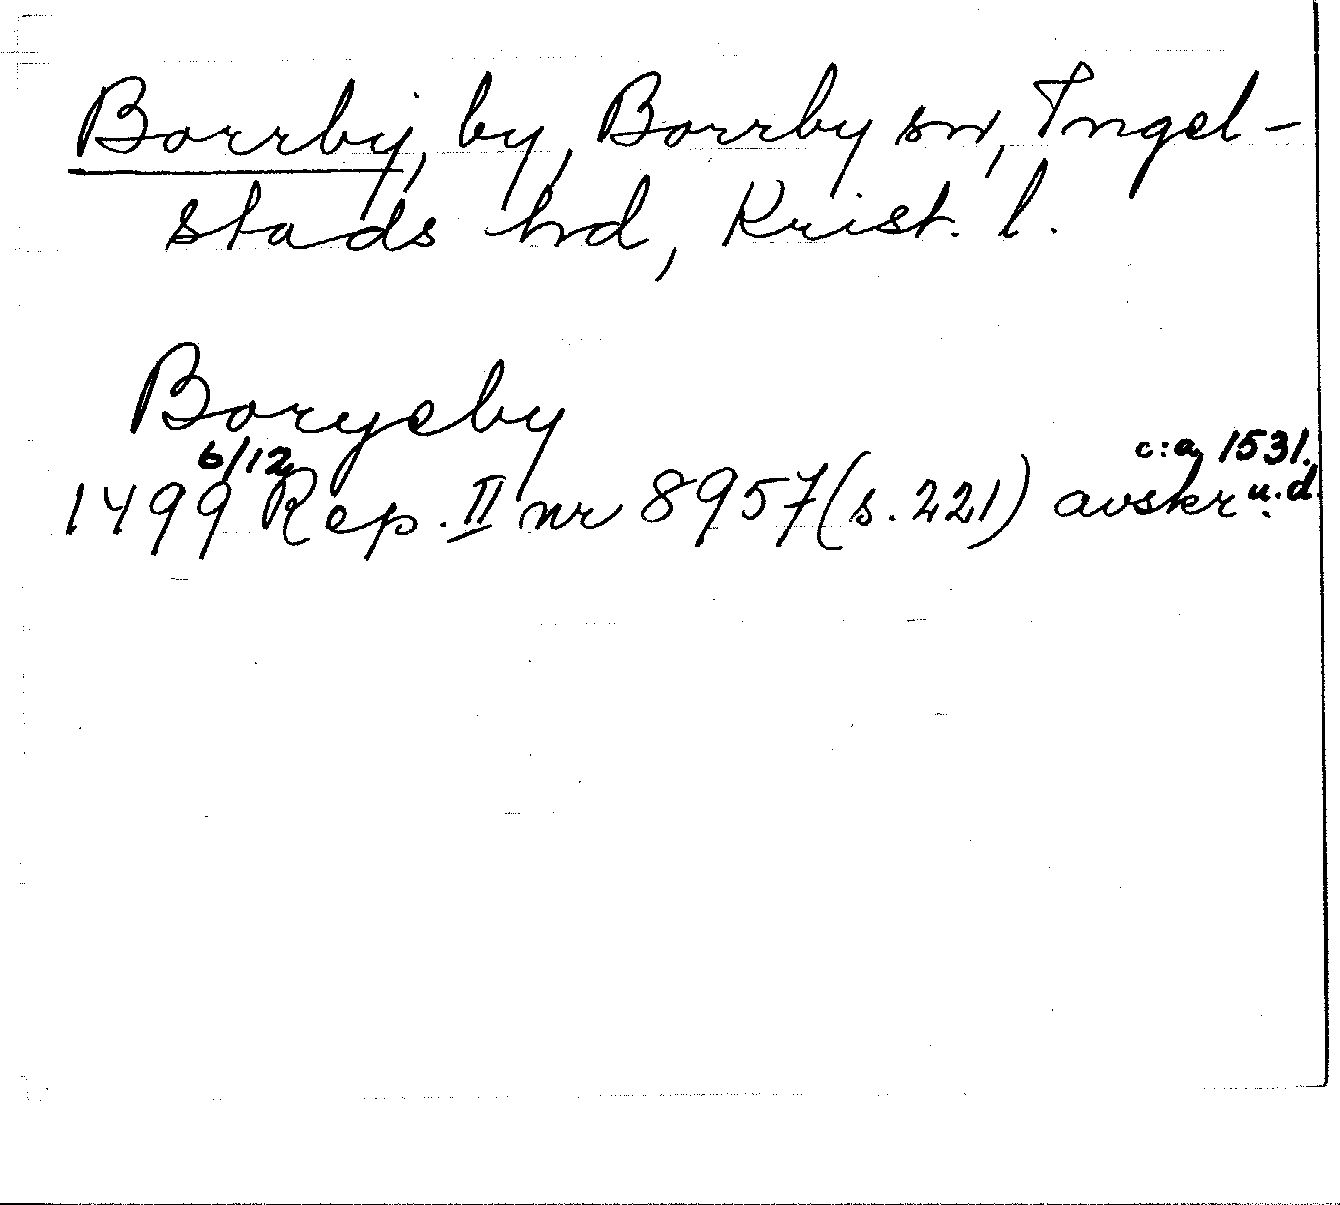 Borrby, by, Borrby sn, Ingel-
stads hd, Krist. l.
Boryeby
6/12 c:a 1531.
1499 Rep. II nr 8957 (s. 221) avskr. u.d.